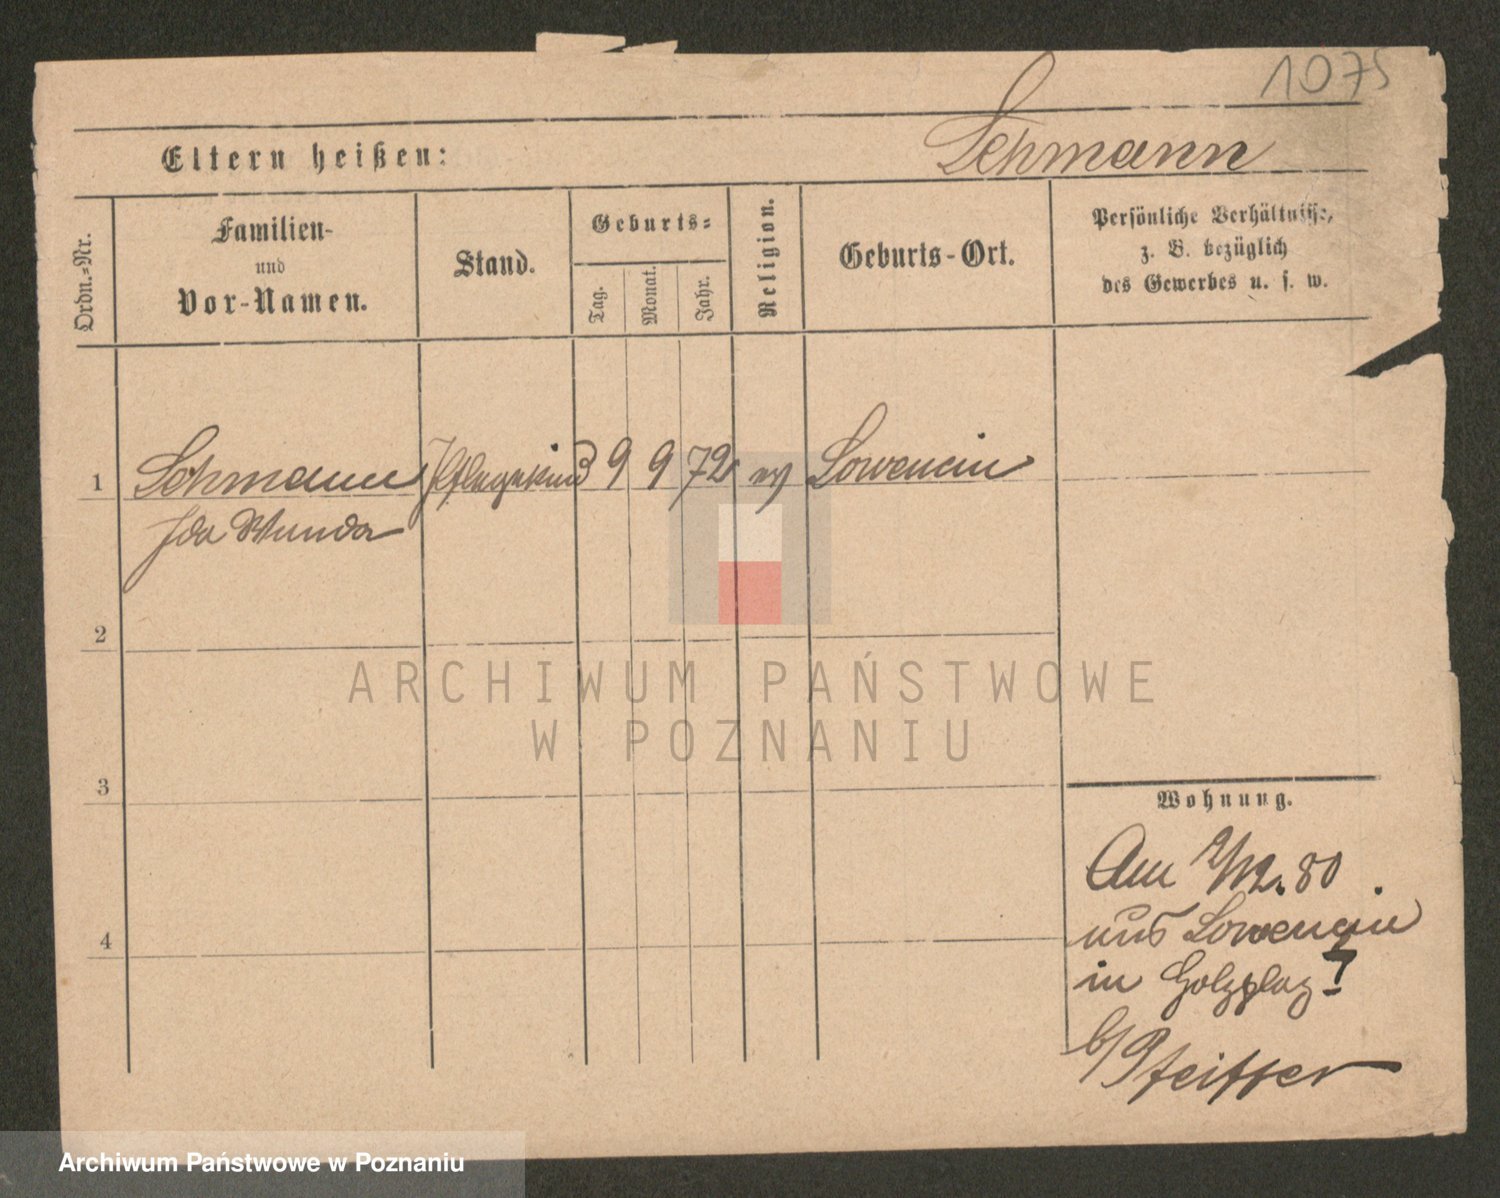 1075
Eltern heißen: Lehmann
Ordn.=Nr.
Familien-
und
Vor-Namen.
Stand.
Geburts=
Tag.
Monat.
Jahr.
Religion.
Geburts-Ort.
Persönliche Verhältnisse,
z. B. bezüglich
des Gewerbes u. s. w.
1 Lehmann Pflegekind 9 9 72 ev Lowencin
Ida Wanda
2
ARCHIWUM PAŃSTWOWE
W POZNANIU
3
Wohnung.
Am 9/12. 80
aus Lowencin
in Holzplaz 7
b/ Pfeiffer
4
Archiwum Państwowe w Poznaniu